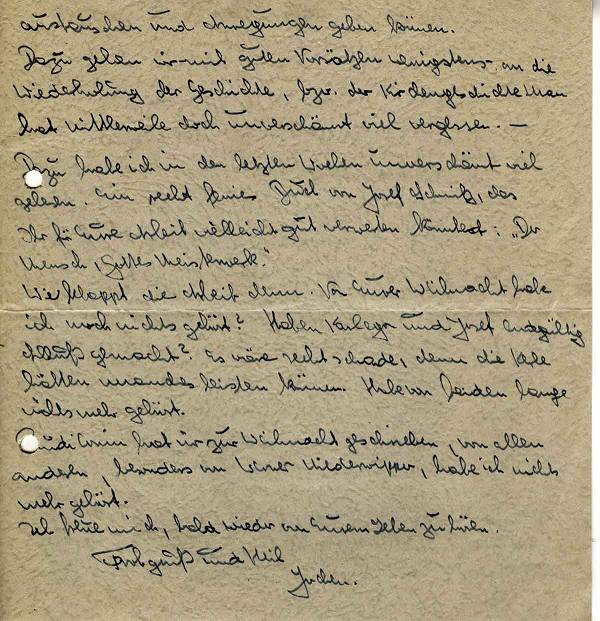 austauschen und Anregungen geben können.
Dazu gehen wir mit guten Vorsätzen wenigstens an die
Wiederholung der Geschichte, bzw. der Kirchengeschichte. Man
hat mittlerweile doch unverschämt viel vergessen. —
Dazu habe ich in den letzten Wochen unverschämt viel
gelesen. Ein recht feines Buch von Josef
das
Ihr für Eure Arbeit vielleicht gut verwerten könntest: „Der
Mensch, Gottes Meisterwerk."
Wie klappt die Arbeit denn. Von Eurer Weihnacht habe
ich noch nichts gehört? Haben und Josef endgültig
Schluß gemacht? Es wäre recht schade, denn die
hätten manches leisten können. Habe von beiden lange
nichts mehr gehört.
hat mir zur Weihnacht geschrieben, von allen
anderen, besonders von habe ich nichts
mehr gehört.
Ich freue mich, bald wieder von Eurem Leben zu hören.
Frohgruß und Heil
Jochen.